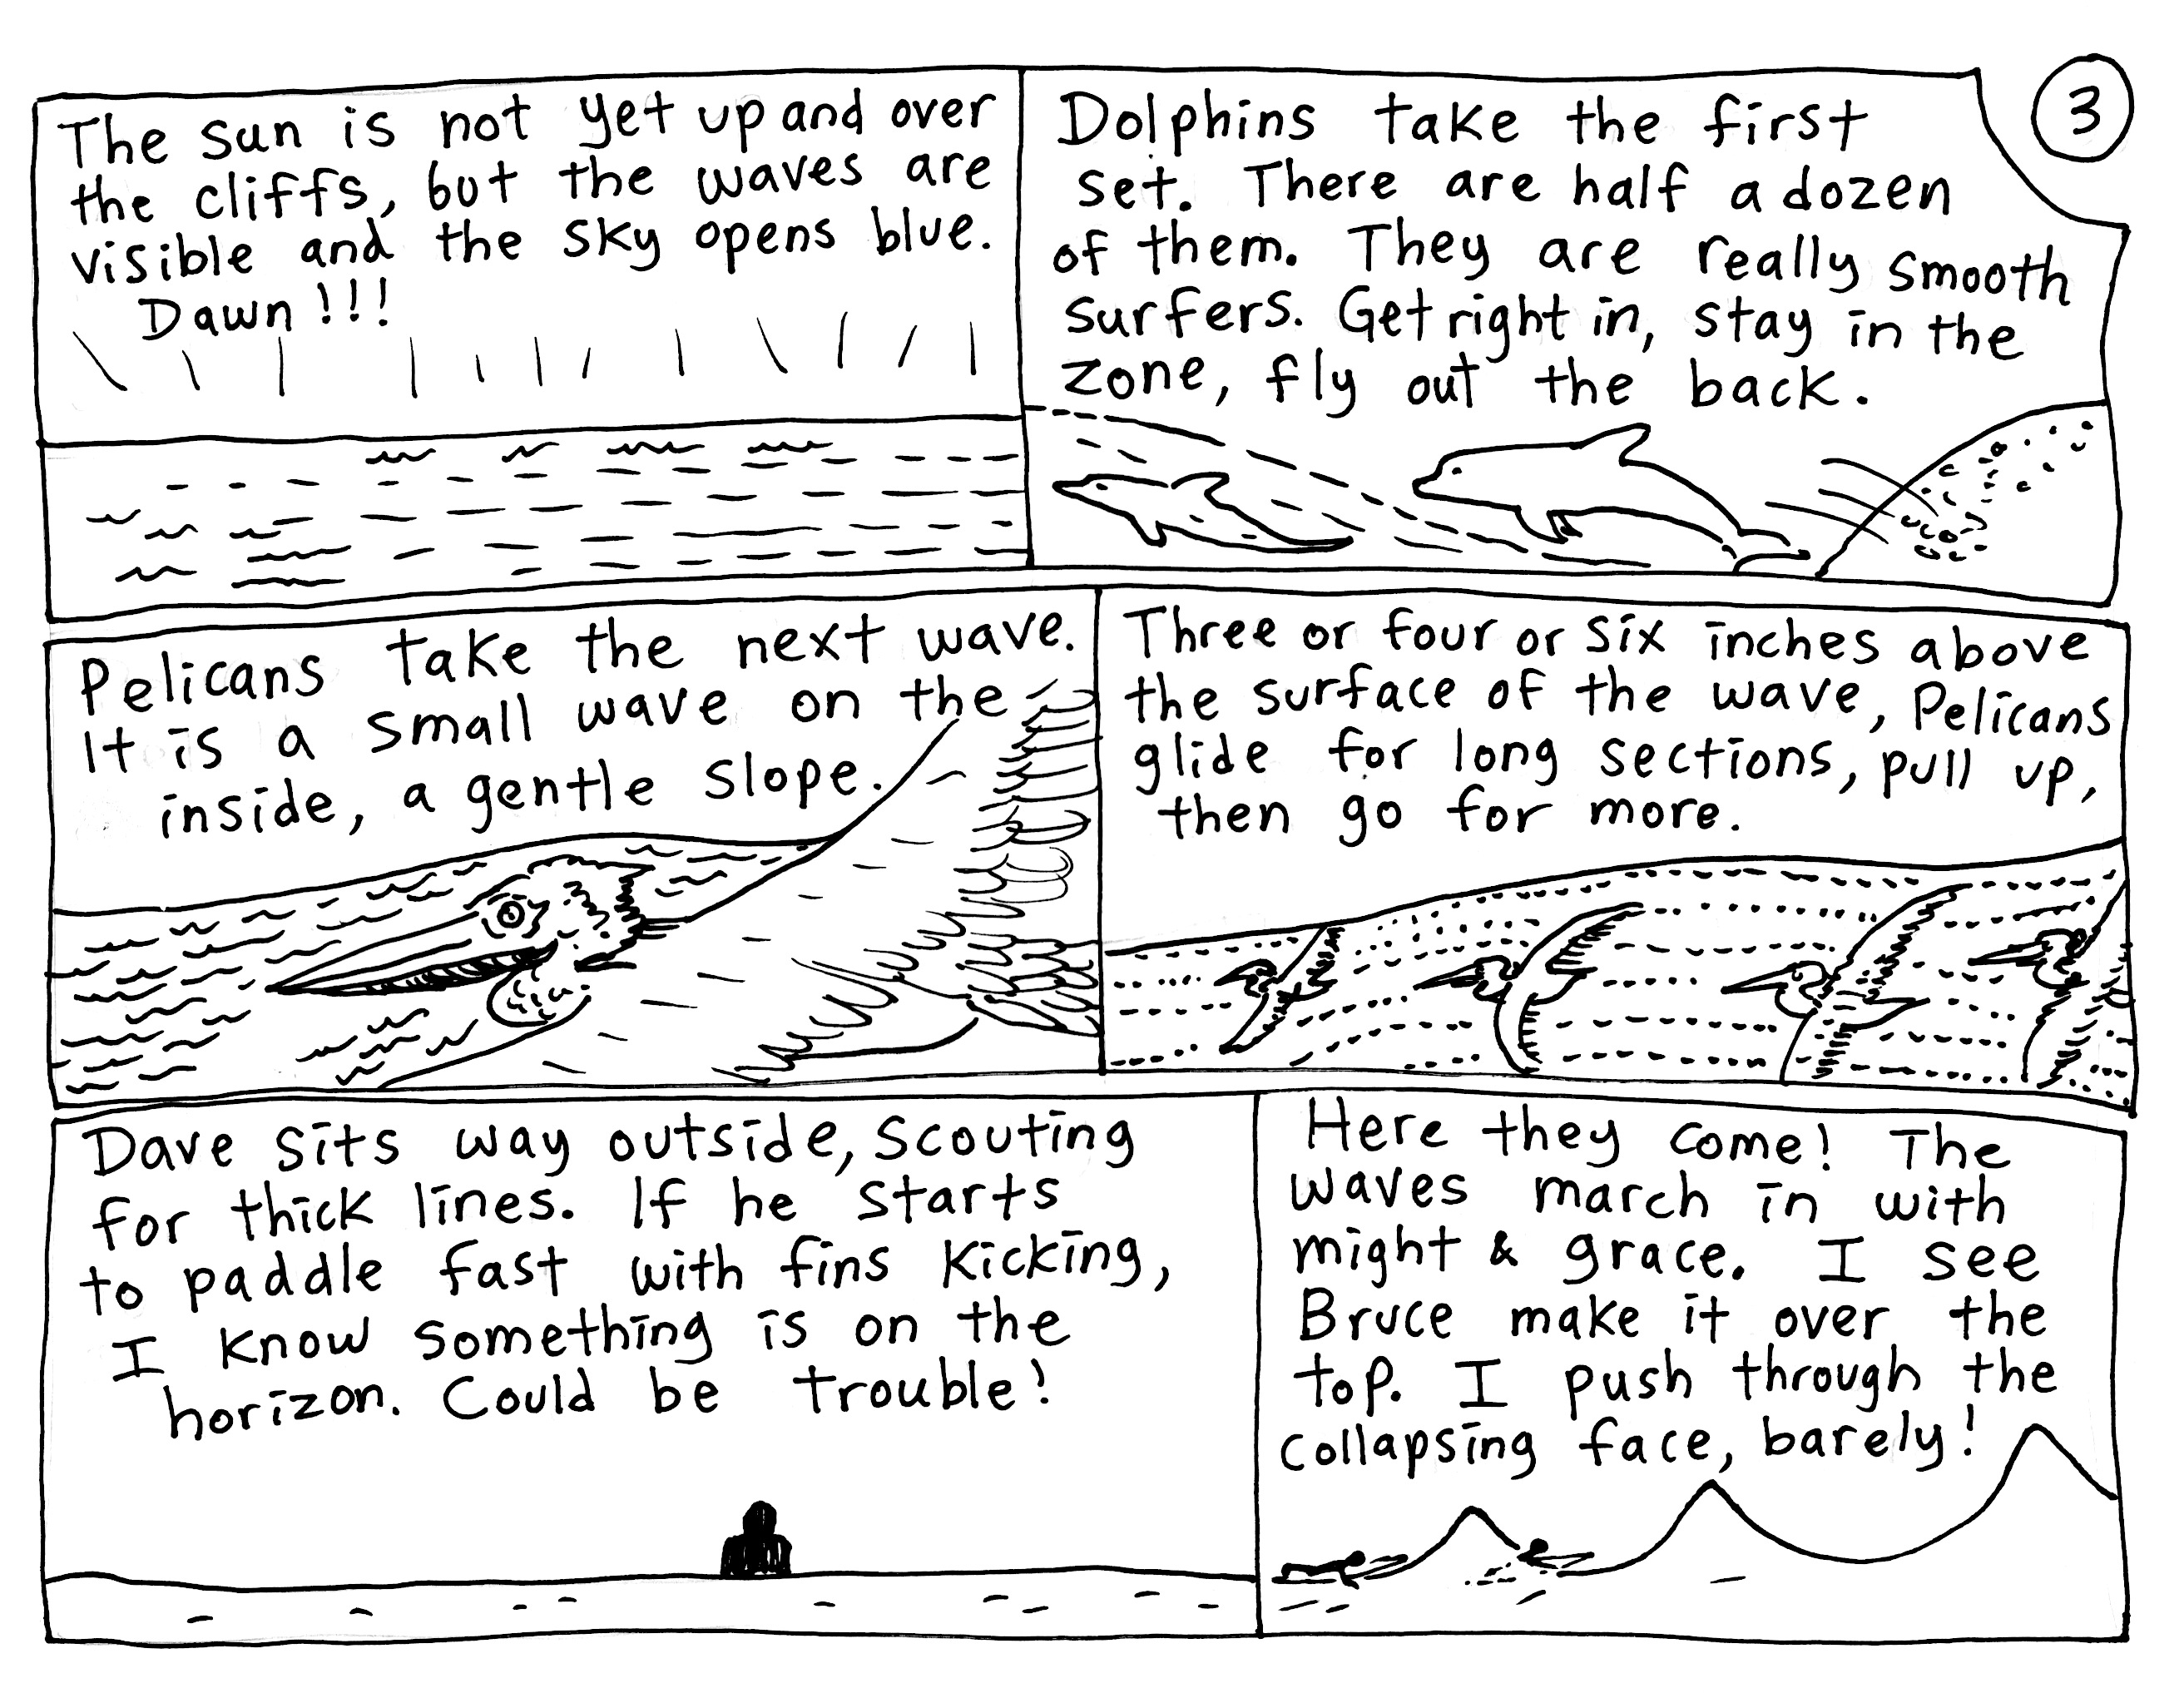 3
The sun is not yet up and over
the cliffs, but the waves are
visible and the sky opens blue.
Dawn!!!
Dolphins take the first
set. There are half a dozen
of them. They are really smooth
surfers. Get right in, stay in the
zone, fly out the back.
Pelicans take the next wave.
It is a small wave on the
inside, a gentle slope.
Three or four or six inches above
the surface of the wave, Pelicans
glide for long sections, pull up,
then go for more.
Dave sits way outside, scouting
for thick lines. If he starts
to paddle fast with fins kicking,
I know something is on the
horizon. Could be trouble!
Here they come! The
waves march in with
might & grace. I see
Bruce make it over the
top. I push through the
collapsing face, barely!